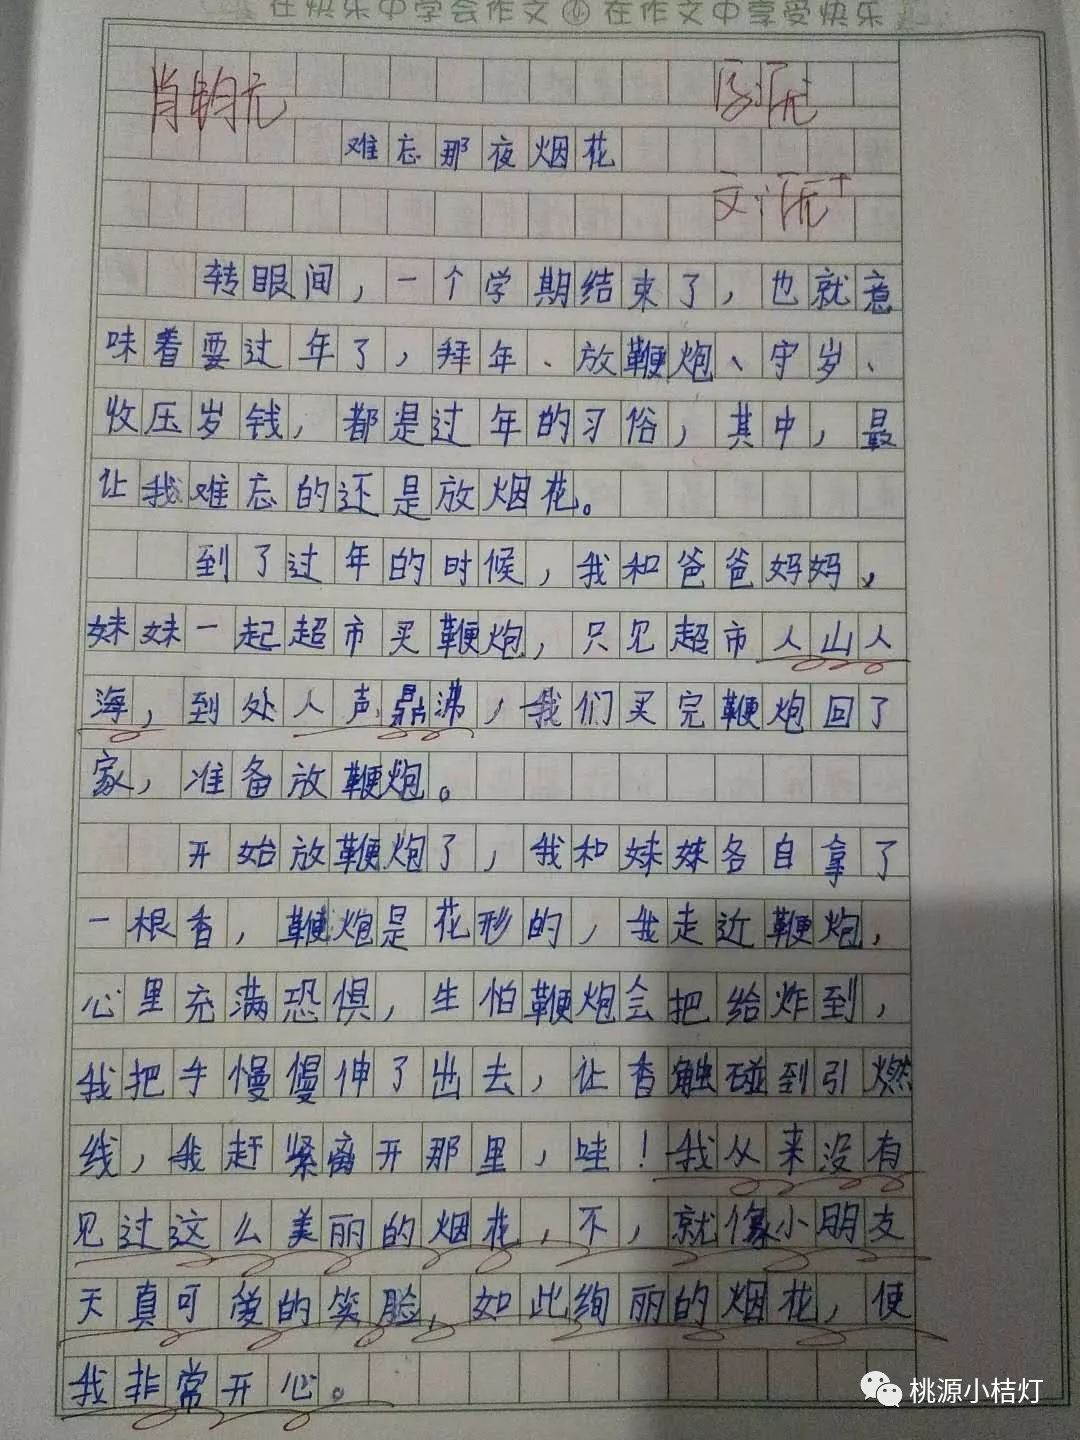 在快乐中学会作文 在作文中享受快乐
肖钧元
难忘那夜烟花
转眼间，一个学期结束了，也就意
味着要过年了，拜年、放鞭炮、守岁、
收压岁钱，都是过年的习俗，其中，最
让我难忘的还是放烟花。
到了过年的时候，我和爸爸妈妈、
妹妹一起超市买鞭炮，只见超市人山人
海，到处人声鼎沸，我们买完鞭炮回了
家，准备放鞭炮。
开始放鞭炮了，我和妹妹各自拿了
一根香，鞭炮是花形的，我走近鞭炮，
心里充满恐惧，生怕鞭炮会把给炸到，
我把手慢慢伸了出去，让香触碰到引燃
线，我赶紧离开那里，哇！我从来没有
见过这么美丽的烟花，不，就像小朋友
天真可爱的笑脸，如此绚丽的烟花，使
我非常开心。
桃源小桔灯